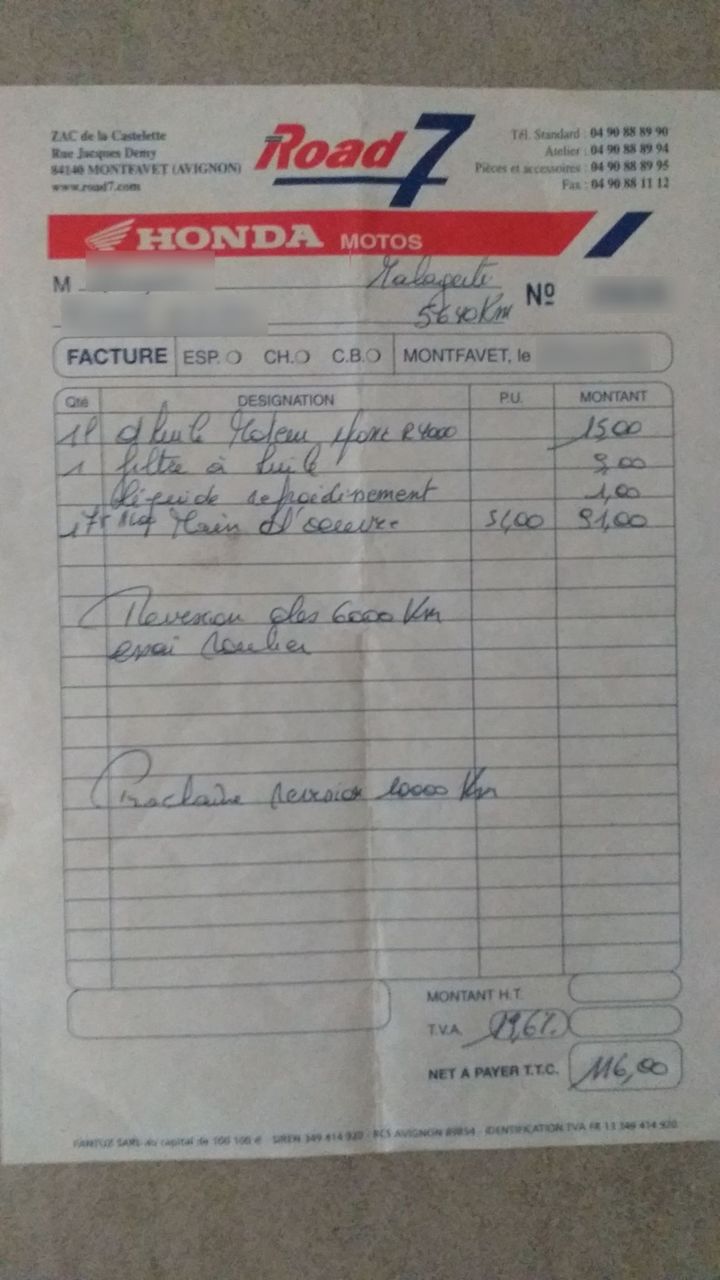 ZAC de la Castelette
Rue Jacques Demy
84140 MONTFAVET (AVIGNON)
www.road7.com
Road 7
Tél. Standard : 04 90 88 89 90
Atelier : 04 90 88 89 94
Pièces et accessoires : 04 90 88 89 95
Fax : 04 90 88 11 12
HONDA MOTOS
M
5640 Km
Nº
FACTURE ESP. CH. C.B. MONTFAVET, le
Qté DESIGNATION P.U. MONTANT
1l d'huile Moteur 15,00
1 filtre à huile 9,00
liquide refroidissement 1,00
Main d'oeuvre 91,00
Revision des 6000 Km
essai routier
Prochaine revision 10000 Km
MONTANT H.T.
T.V.A. 19,6%
NET A PAYER T.T.C. 116,00
PANTUZ SARL au capital de 100 100 € - SIREN 349 414 920 - RCS AVIGNON 89B54 - IDENTIFICATION TVA FR 13 349 414 920